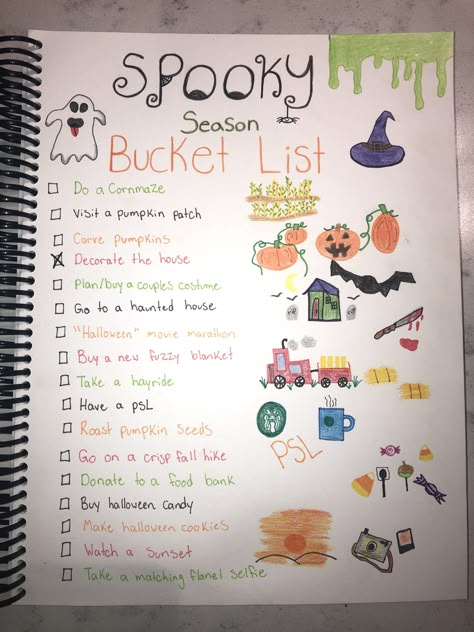 SPOOKY
Season
BUCKET LIST
Do a Cornmaze
Visit a pumpkin patch
Carve pumpkins
Decorate the house
Plan/buy a couples costume
Go to a haunted house
"Halloween" movie marathon
Buy a new fuzzy blanket
Take a hayride
Have a PSL
Roast pumpkin seeds
PSL
Go on a crisp fall hike
Donate to a food bank
Buy halloween candy
Make halloween cookies
Watch a sunset
Take a matching flanel selfie